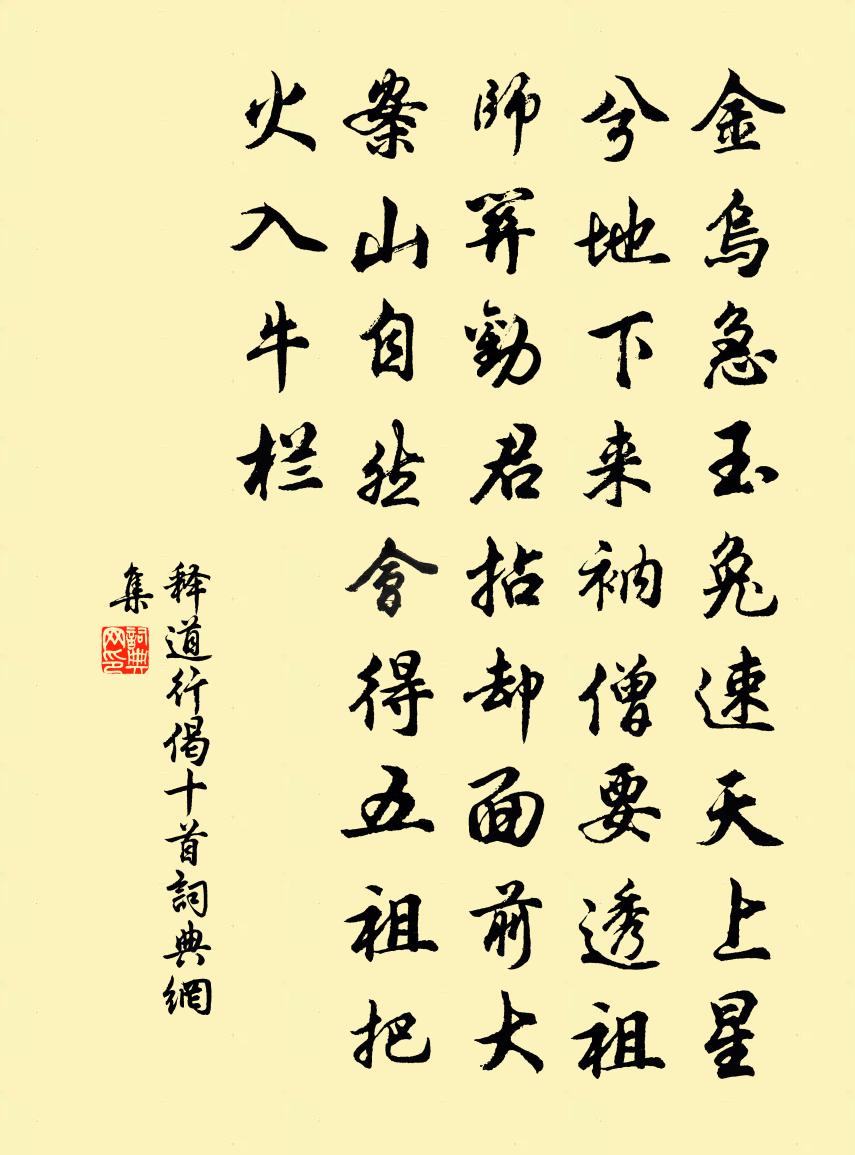 金烏急玉兔速天上星
兮地下来衲僧要透祖
師關勸君拈却面前大
案山自然會得五祖把
火入牛栏
释道行偈十首詞典網
集
詞典
网印